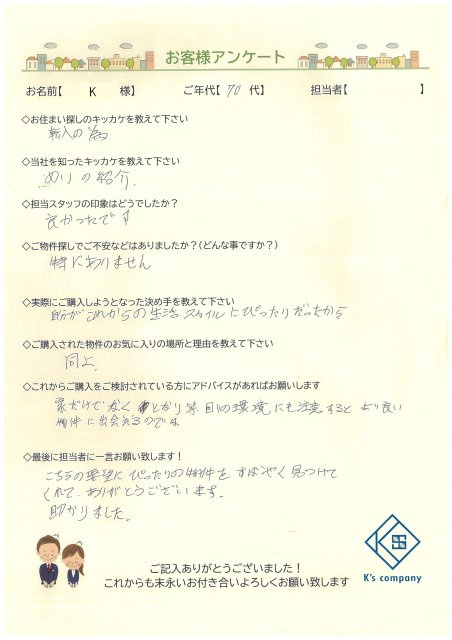 お客様アンケート
お名前【 K 様】 ご年代【 70 代】 担当者【 】
◇お住まい探しのキッカケを教えて下さい
転入の為
◇当社を知ったキッカケを教えて下さい
の紹介.
◇担当スタッフの印象はどうでしたか？
良かったです
◇ご物件探しでご不安などはありましたか？（どんな事ですか？）
特にありません
◇実際にご購入しようとなった決め手を教えて下さい
自分がこれからの生活スタイルにぴったりだったから
◇ご購入された物件のお気に入りの場所と理由を教えて下さい
同上.
◇これからご購入をご検討されている方にアドバイスがあればお願いします
家だけでなく となり等、回りの環境にも注意すると より良い
物件に出会えるのでは
◇最後に担当者に一言お願い致します！
こちらの要望にぴったりの物件を すばやく見つけて
くれて、ありがとうございます.
助かりました。
ご記入ありがとうございました！
これからも末永いお付き合いよろしくお願い致します
K's company